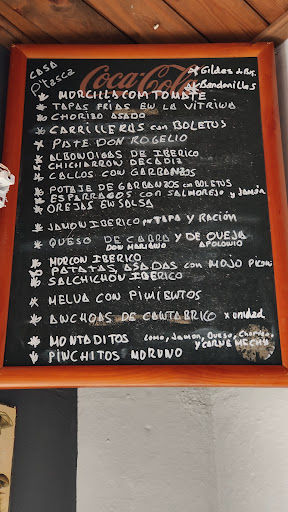 CASA
Pitasca
Coca-Cola
* Gildas de Bos.
* Bandarillas
* MORCILLA COM TOMATE
* TAPAS FRIAS EN LA VITRINA
* CHORIZO ASADO
* CARRILLERAS con BOLETUS
* PATE DON ROGELIO
* ALBONDIGAS DE IBERICO
* CHICHARRON DE CADIZ
* CALLOS CON GARBANZOS
* POTAJE DE GARBANZOS con BOLETUS
* ESPARRAGOS CON SALMOREJO y JAMÓN
* OREJAS EN SALSA
* JAMON IBERICO por TAPA y RACIÓN
* QUESO DE CABRA y DE OVEJA
DON MARIANO APOLONIO
* MORCON IBERICO
* PATATAS ASADAS con MOJO PICON
* SALCHICHÓN IBERICO
* MELVA CON PIMIENTOS
* ANCHOAS DE CANTABRICO x unidad
* MONTADITOS LOMO, JAMON, QUESO, CHORIZO,
y CARNE MECHA
* PINCHITOS MORUNO